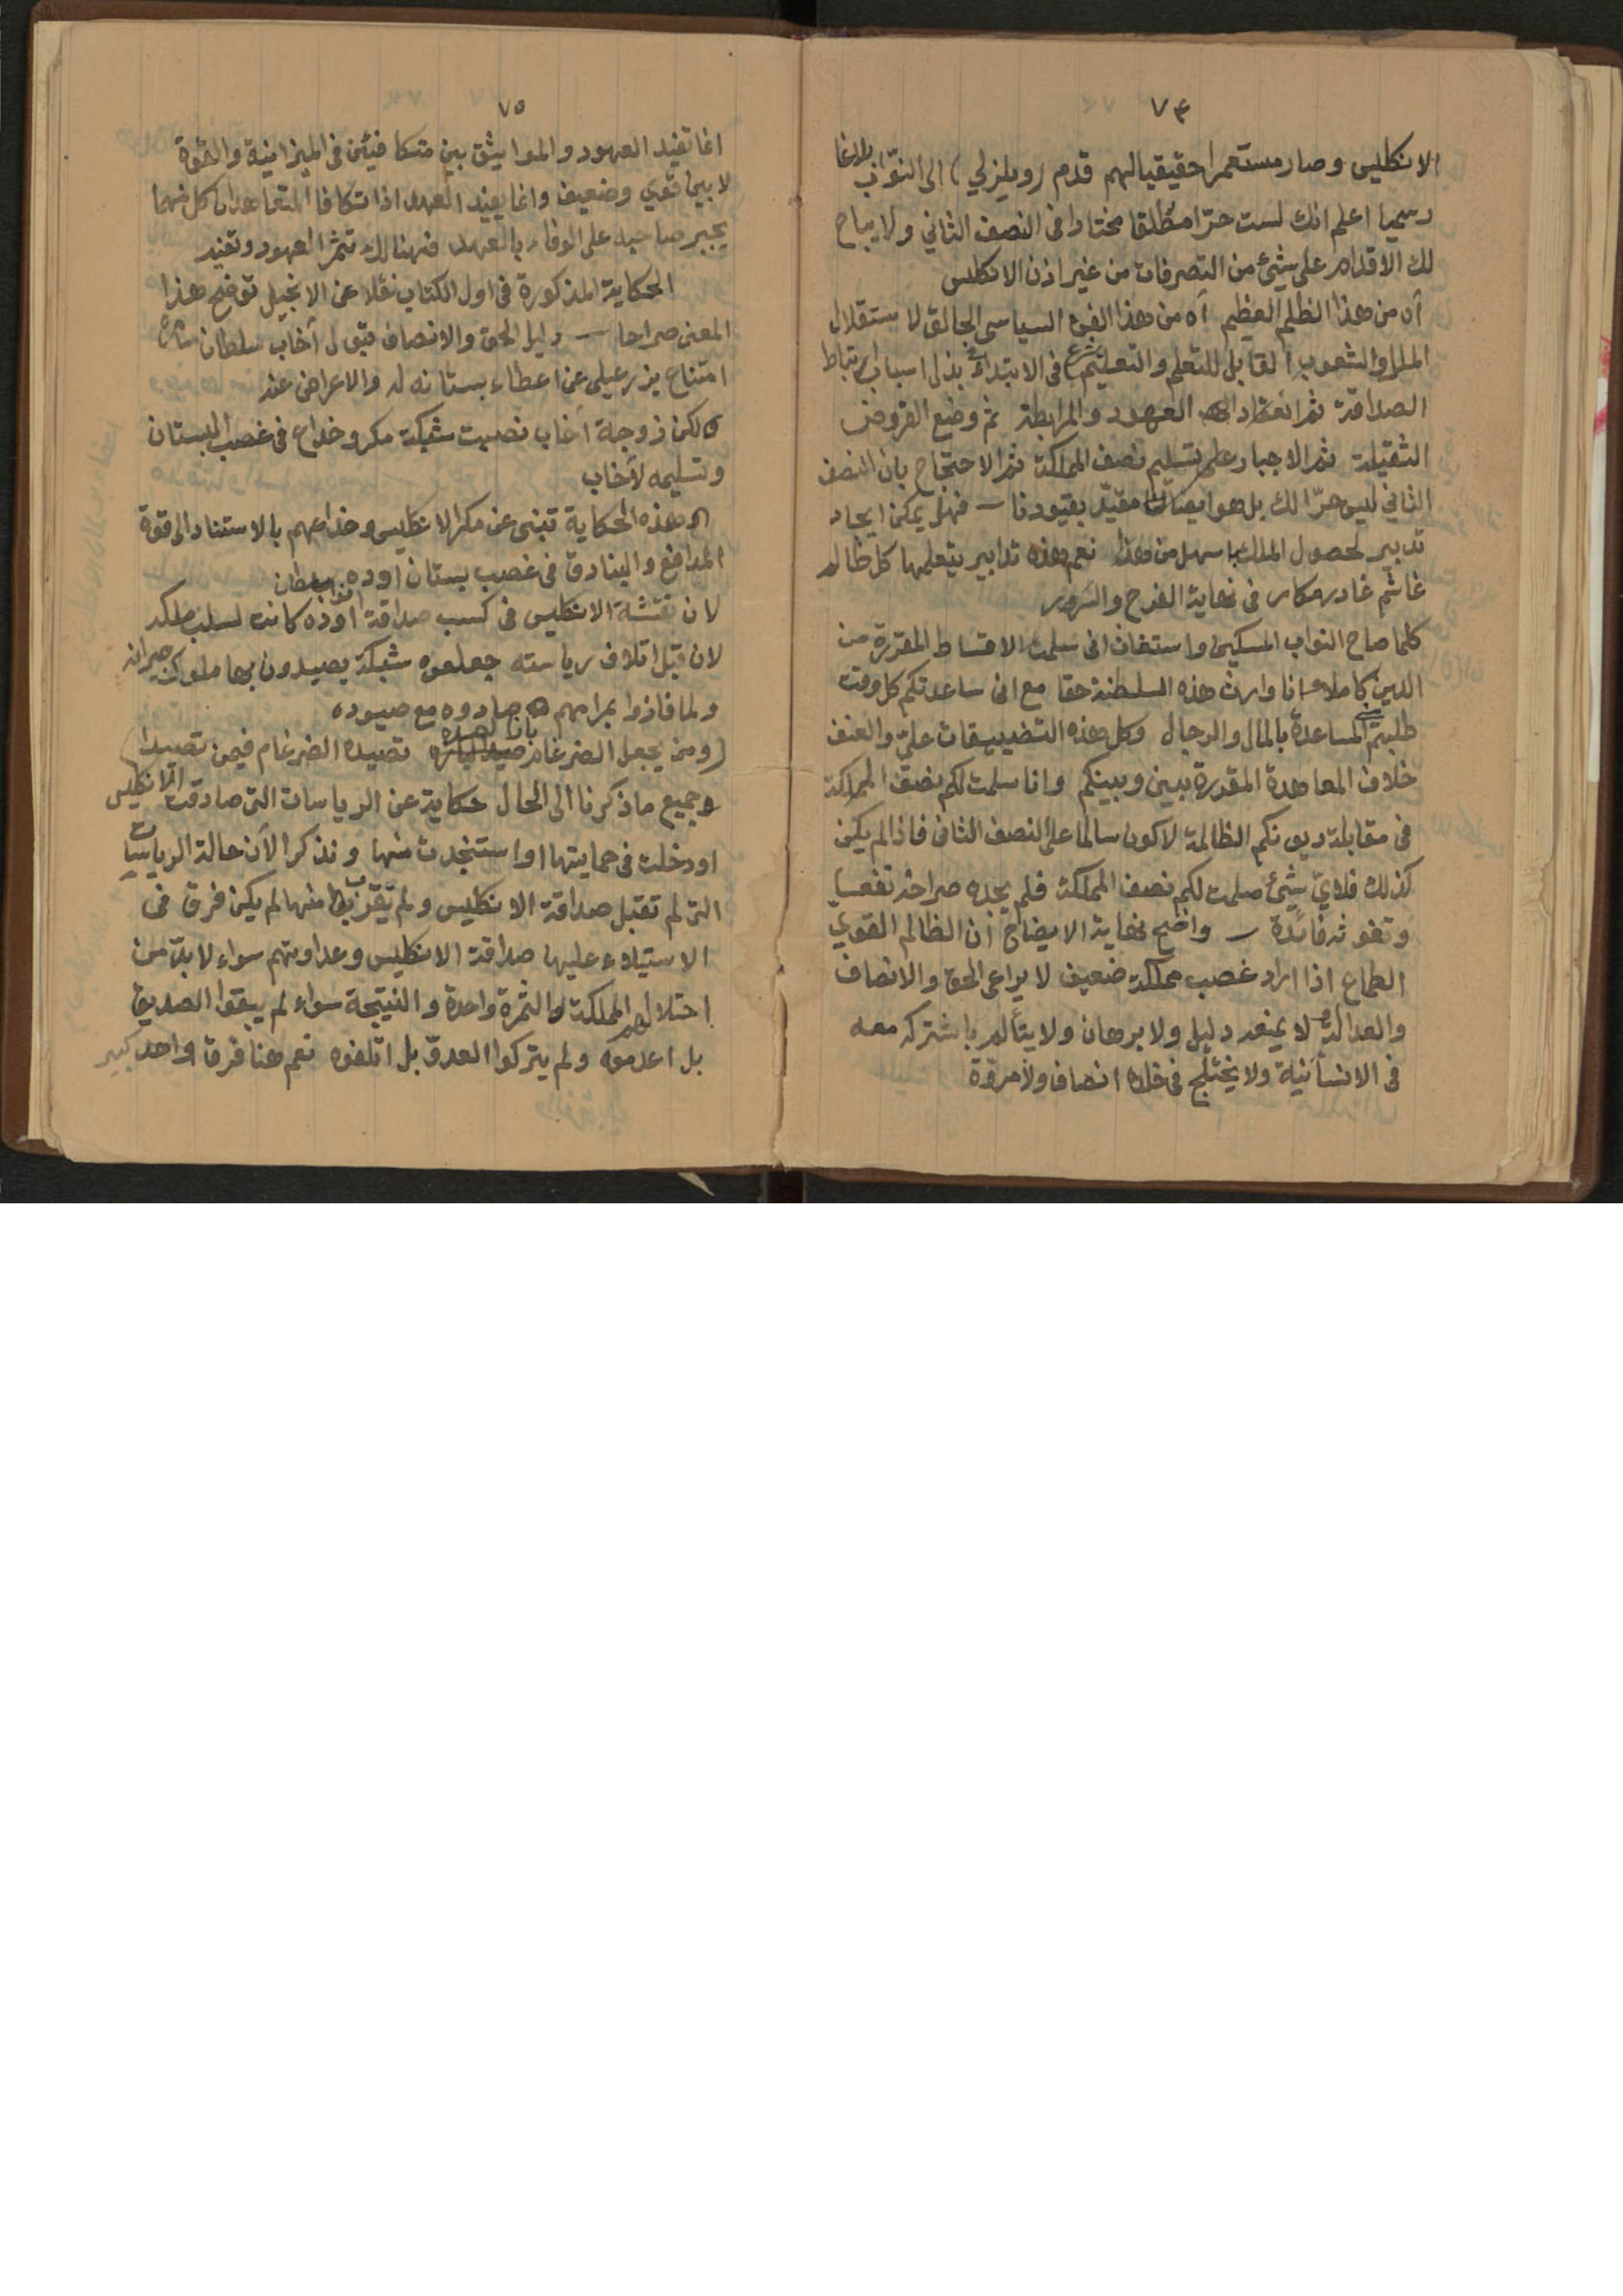 ٧٤
الانكليس وصار مستعمرا حقيقيا لهم قدم (ويلزلي) الى النوّاب بلاغا
رسميا اعلم انك لست حرّا مطلقا مختارا فى النصف الثاني ولا يباح
لك الاقدام على شيئ من التصرفات من غير اذن الانكليس
آه من هذا الظلم العظيم آه من هذا الفخ السياسى الحالق لاستقلال
الملل والشعوب القابل للتعلم والتعليم شرع فى الابتداء بذل اسباب ارتباط
الصداقة ثم انعقاد العهود والمرابطة ثم وضع القروض
الثقيلة ثم الاجبار على تسليم نصف المملكة ثم الاحتجاج بان النصف
الثاني ليس حرّا لك بل هو ايضا مقيّد بقيودنا — فهل يمكن ايجاد
تدبير لحصول الملك اسهل من هذا نعم هذه تدابير يتعلمها كل ظالم
غاشم غادر مكار فى نهاية الفرح والسرور
كلما صاح النواب المسكين واستغاث انى سلمت الاقساط المقررة من
الدين كاملا وانا وارث هذه السلطنة حقا مع انى ساعدتكم كل وقت
طلبتم منى المساعدة بالمال والرجال وكل هذه التضييقات علىّ والعنف
خلاف المعاهدة المقررة بينى وبينكم وانا سلمت لكم نصف المملكة
فى مقابلة ديونكم الظالمة لاكون سالما على النصف الثانى فاذا لم يكن
كذلك فلايّ شيئ سلمت لكم نصف المملكة فلم يجده صراخه نفعا
وتفوته فائدة — واضح نهاية الايضاح أن الظالم القوي
الطماع اذا اراد غصب مملكة ضعيف لا يراعى الحق والانصاف
والعدالة ولا يمنعه دليل ولا برهان ولا يتألم باشتراكه معه
فى الانسانية ولا يختلج فى خلده انصاف ولا مروّة
٧٥
انما تفيد العهود والمواثيق بين متكافئين فى الميزانية والقوة
لا بين قوي وضعيف وانما يفيد العهد اذا تكافا المتعاهدان كل منهما
يجبر صاحبه على الوفاء بالعهد فهنالك تثمر العهود وتفيد
الحكاية المذكورة فى اول الكتاب نقلا عن الانجيل توضح هذا
المعنى صراحا — دليل الحق والانصاف قبول أخاب سلطان
امتناع يزرعيلى عن اعطاء بستانه له والاعراض عنه
لكن زوجة أخاب نصبت شبكة مكر وخداع فى غصب البستان
وتسليمه لأخاب
هذه الحكاية تنبئ عن مكر الانكليس وخداعهم بالاستناد الى قوة
المدافع والبنادق فى غصب بستان اوده
لان نقشة الانكليس فى كسب صداقة نواب اوده كانت لسلب ملكه
لان قبل اتلاف رياسته جعلوه شبكة يصيدون بها ملوك جيرانه
ولما فازوا بمرامهم صادوه مع صيوده
(ومن يجعل الضرغام بازا لصيده تصيده الضرغام فيمن تصيدا)
وجميع ما ذكرنا الى الحال حكاية عن الرياسات التى صادقت الانكليس
او دخلت فى حمايتها او استنجدت منها ونذكر الآن حالة الرياسات
التى لم تقبل صداقة الانكليس ولم تتقرب منها لم يكن فرق فى
الاستيلاء عليها صداقة الانكليس وعداوتهم سواء لا بدّ من
احتلال المملكة والثمرة واحدة والنتيجة سواء لم يبقوا الصديق
بل اعدموه ولم يتركوا العدوّ بل اتلفوه نعم هنا فرق واحد كبير